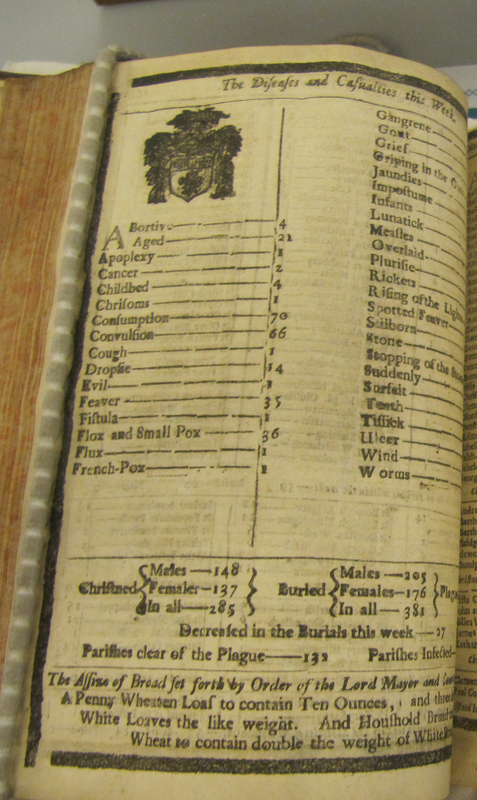 The Diſeaſes and Caſualties this Week.
Abortive 4
Aged 21
Apoplexy 1
Cancer 2
Childbed 4
Chriſoms 1
Conſumption 70
Convulſion 66
Cough 1
Dropſie 14
Evil 1
Feaver 35
Fiſtula 1
Flox and Small Pox 36
Flux 1
French-Pox 1
Gangrene
Gout
Grief
Griping in the
Jaundies
Impoſtume
Infants
Lunatick
Meaſles
Overlaid
Pluriſie
Rickets
Riſing of the Lights
Spotted Feaver
Stilborn
Stone
Stopping of the
Suddenly
Surfeit
Teeth
Tiſſick
Ulcer
Wind
Worms
Chriſtned
Males 148
Females 137
In all 285
Buried
Males 205
Females 176
In all 381
Decreaſed in the Burials this week 27
Pariſhes clear of the Plague 132 Pariſhes Infected
The Aſſize of Bread ſet forth by Order of the Lord Mayor and
A Penny Wheaten Loaf to contain Ten Ounces, and three
White Loaves the like weight. And Houſhold Bread
Wheat to contain double the weight of White